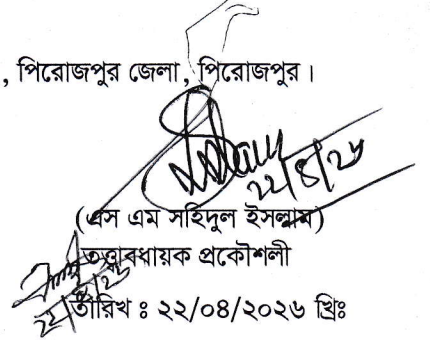 , পিরোজপুর জেলা, পিরোজপুর।
২২/৪/২৬
(এস এম সহিদুল ইসলাম)
তত্ত্বাবধায়ক প্রকৌশলী
তারিখ ঃ ২২/০৪/২০২৬ খ্রিঃ